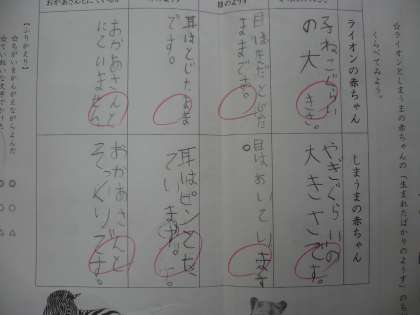 ☆ライオンとしまうまの赤ちゃんの「生まれたばかりのようす」のち
くらべてみよう。
ライオンの赤ちゃん
子ねこぐらい
の大きさ。
目はまだとじた
ままです。
耳はとじたまま
です。
おかあさんと
にていません
しまうまの赤ちゃん
やぎぐらいの
大きさです。
目はあいてい
ます。
耳はピンとたっ
ています。
おかあさんと
そっくりです。
【ふりかえり】